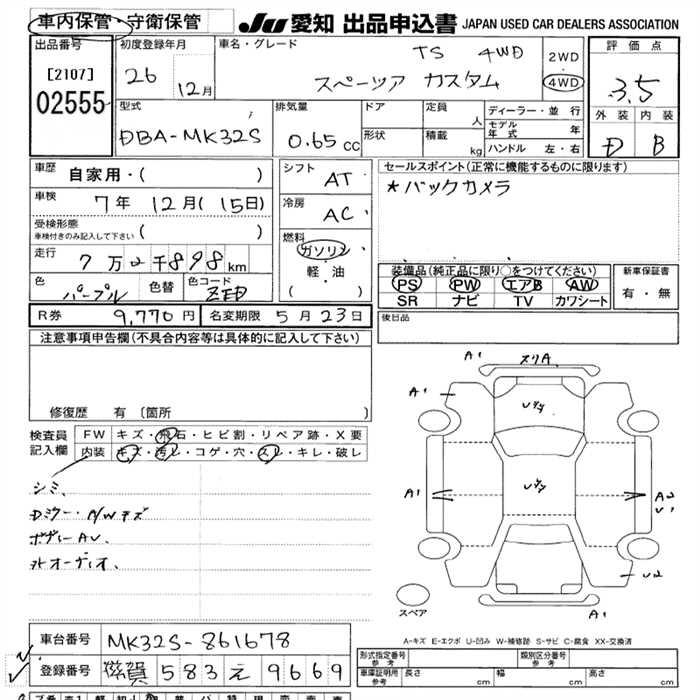 車内保管・守衛保管
JU 愛知 出品申込書 JAPAN USED CAR DEALERS ASSOCIATION
出品番号
[2107]
02555
初度登録年月
26
12月
車名・グレード
TS 4WD
スペーツア カスタム
2WD
4WD
評価点
3.5
外装 内装
D B
型式
DBA-MK32S
排気量
0.65 CC
ドア
形状
定員
人
積載
kg
ディーラー・並行
モデル年式 年
ハンドル 左・右
車歴 自家用・( )
車検 7年 12月(15日)
受検形態
車検付きのみ記入して下さい ( )
走行
km
色 パープル
色替
色コード ZED
シフト AT
冷房 AC
燃料
ガソリン・
軽・油
( )
セールスポイント(正常に機能するものに限ります)
*バックカメラ
装備品(純正品に限り○をつけてください)
PS PW エアB AW
SR ナビ TV カワシート
新車保証書
有・無
R券 9,770円
名変期限 5月23日
後日品
注意事項申告欄(不具合内容等は具体的に記入して下さい)
修復歴 有 〔箇所 〕
検査員記入欄
FW キズ・飛石・ヒビ割・リペア跡・X要
内装 キズ・汚レ・コゲ・穴・スレ・キレ・破レ
シミ、
Dミラー・A/Wキズ
ボディーAU、
外オーディオ、
A1
スリA
A1
A1
A2
U1
U2
A1
スペア
A-キズ E-エクボ U-凹み W-補修跡 S-サビ C-腐食 XX-交換済
車台番号 MK32S-861678
登録番号 滋賀 583 え 9669
形式指定番号 参考
類別区分番号 参考
車庫証明用 参考
長さ cm
幅 cm
高さ cm